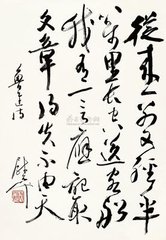 從來一別又經年
萬里長風送客船
我有一言應記取
文章得失不由天
魯迅詩